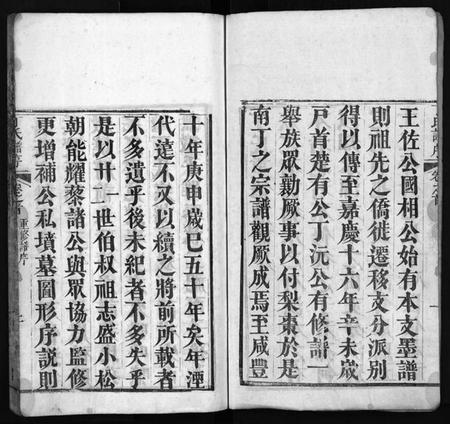 王佐公國相公始有本支墨譜
則祖先之僑徙遷移支分派別
得以傳至嘉慶十六年辛未歲
戸首楚有公丁沅公有修譜一
舉族眾勷厥事以付梨棗於是
南丁之宗譜觀厥成焉至咸豐
十年庚申歲已五十年矣年湮
代遠不又以續之將前所載者
不多遺乎後未紀者不多失乎
是以廿一世伯叔祖志盛小松
朝能耀藜諸公與眾協力監修
更增補公私墳墓圖形序說則
氏譜序
卷之首
重修譜序